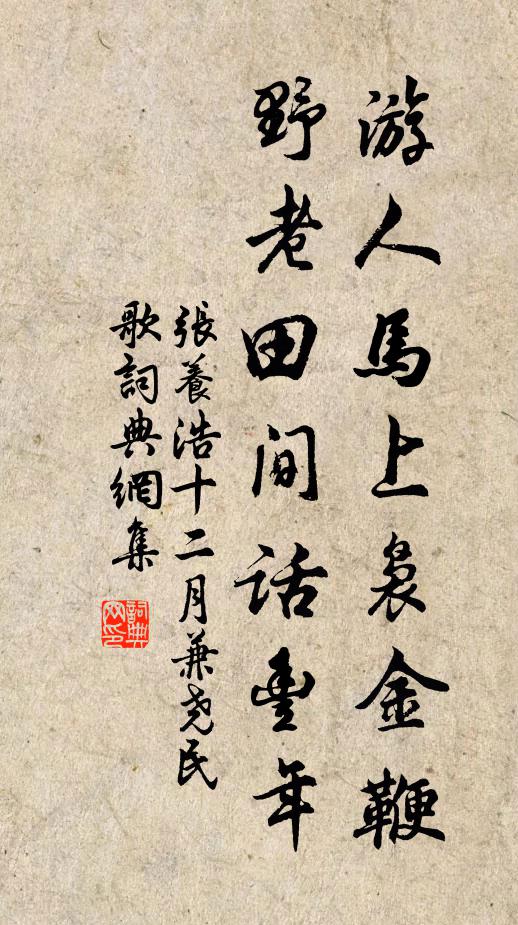 游人馬上裊金鞭
野老田間話豐年
張養浩十二月兼尧民
歌詞典網集
詞典
网印